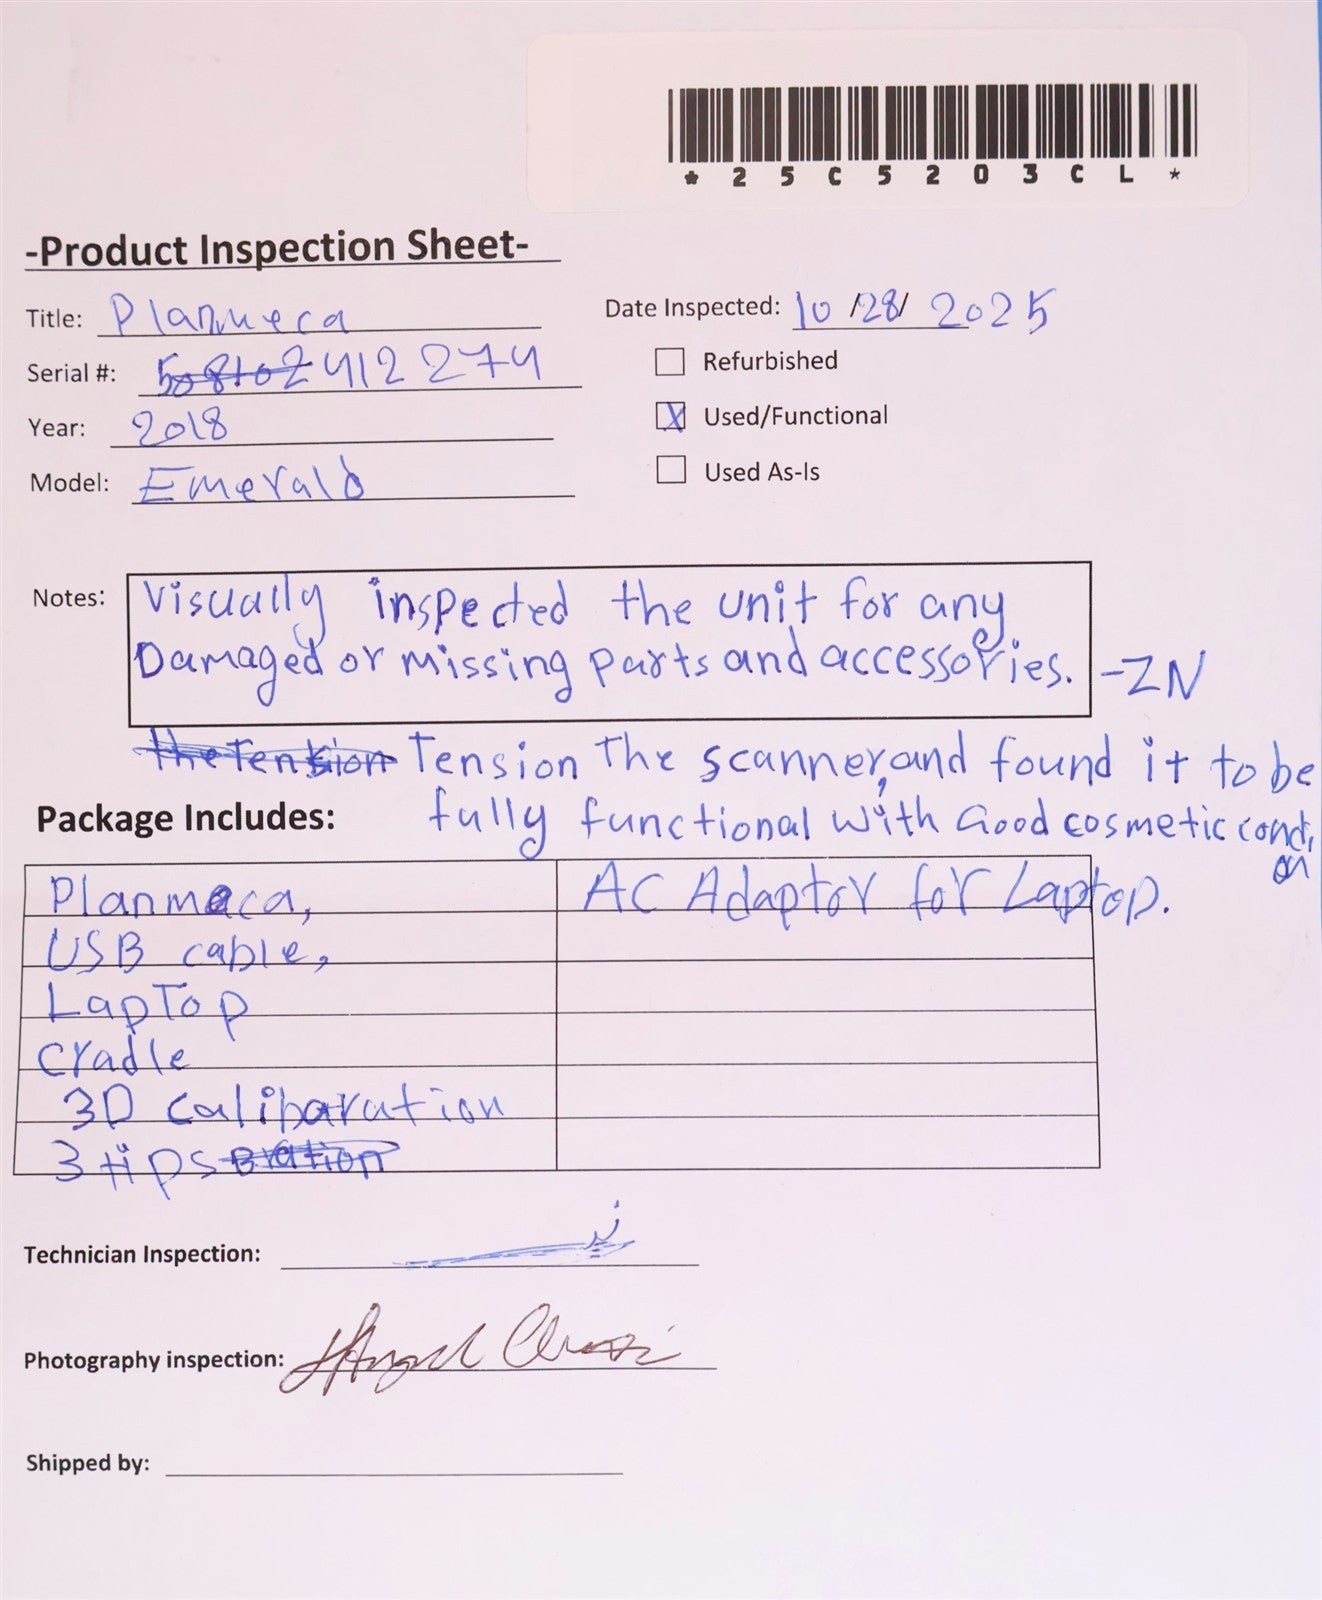 * 2 5 C 5 2 0 3 C L *
-Product Inspection Sheet-
Title: Planmeca
Date Inspected: 10 /28/ 2025
Serial #: 508102 412 274
Refurbished
Year: 2018
X Used/Functional
Model: Emerald
Used As-Is
Notes: Visually inspected the unit for any
Damaged or missing parts and accessories. -ZN
the Tension Tension The scanner, and found it to be
Package Includes: fully functional with Good cosmetic condi
on
Planmeca, AC Adaptor for Laptop.
USB cable,
LapTop
cradle
3D caliparation
3 tips
Technician Inspection:
Photography inspection:
Shipped by: